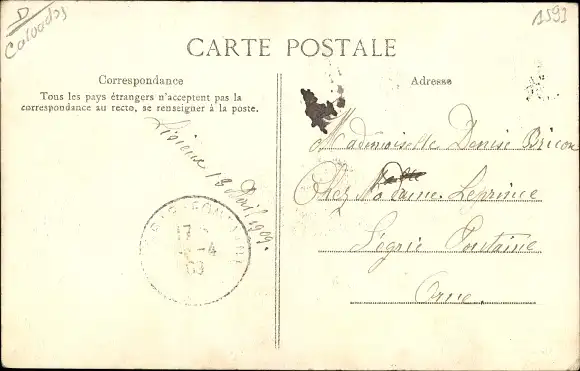 D
Calvados
1593
CARTE POSTALE
Correspondance
Tous les pays étrangers n'acceptent pas la
correspondance au recto, se renseigner à la poste.
Adresse
13 Avril 1909.
Mademoiselle Denise Bricon
Chez Madame Leprince
Ségrie Fontaine
Orne
17
4